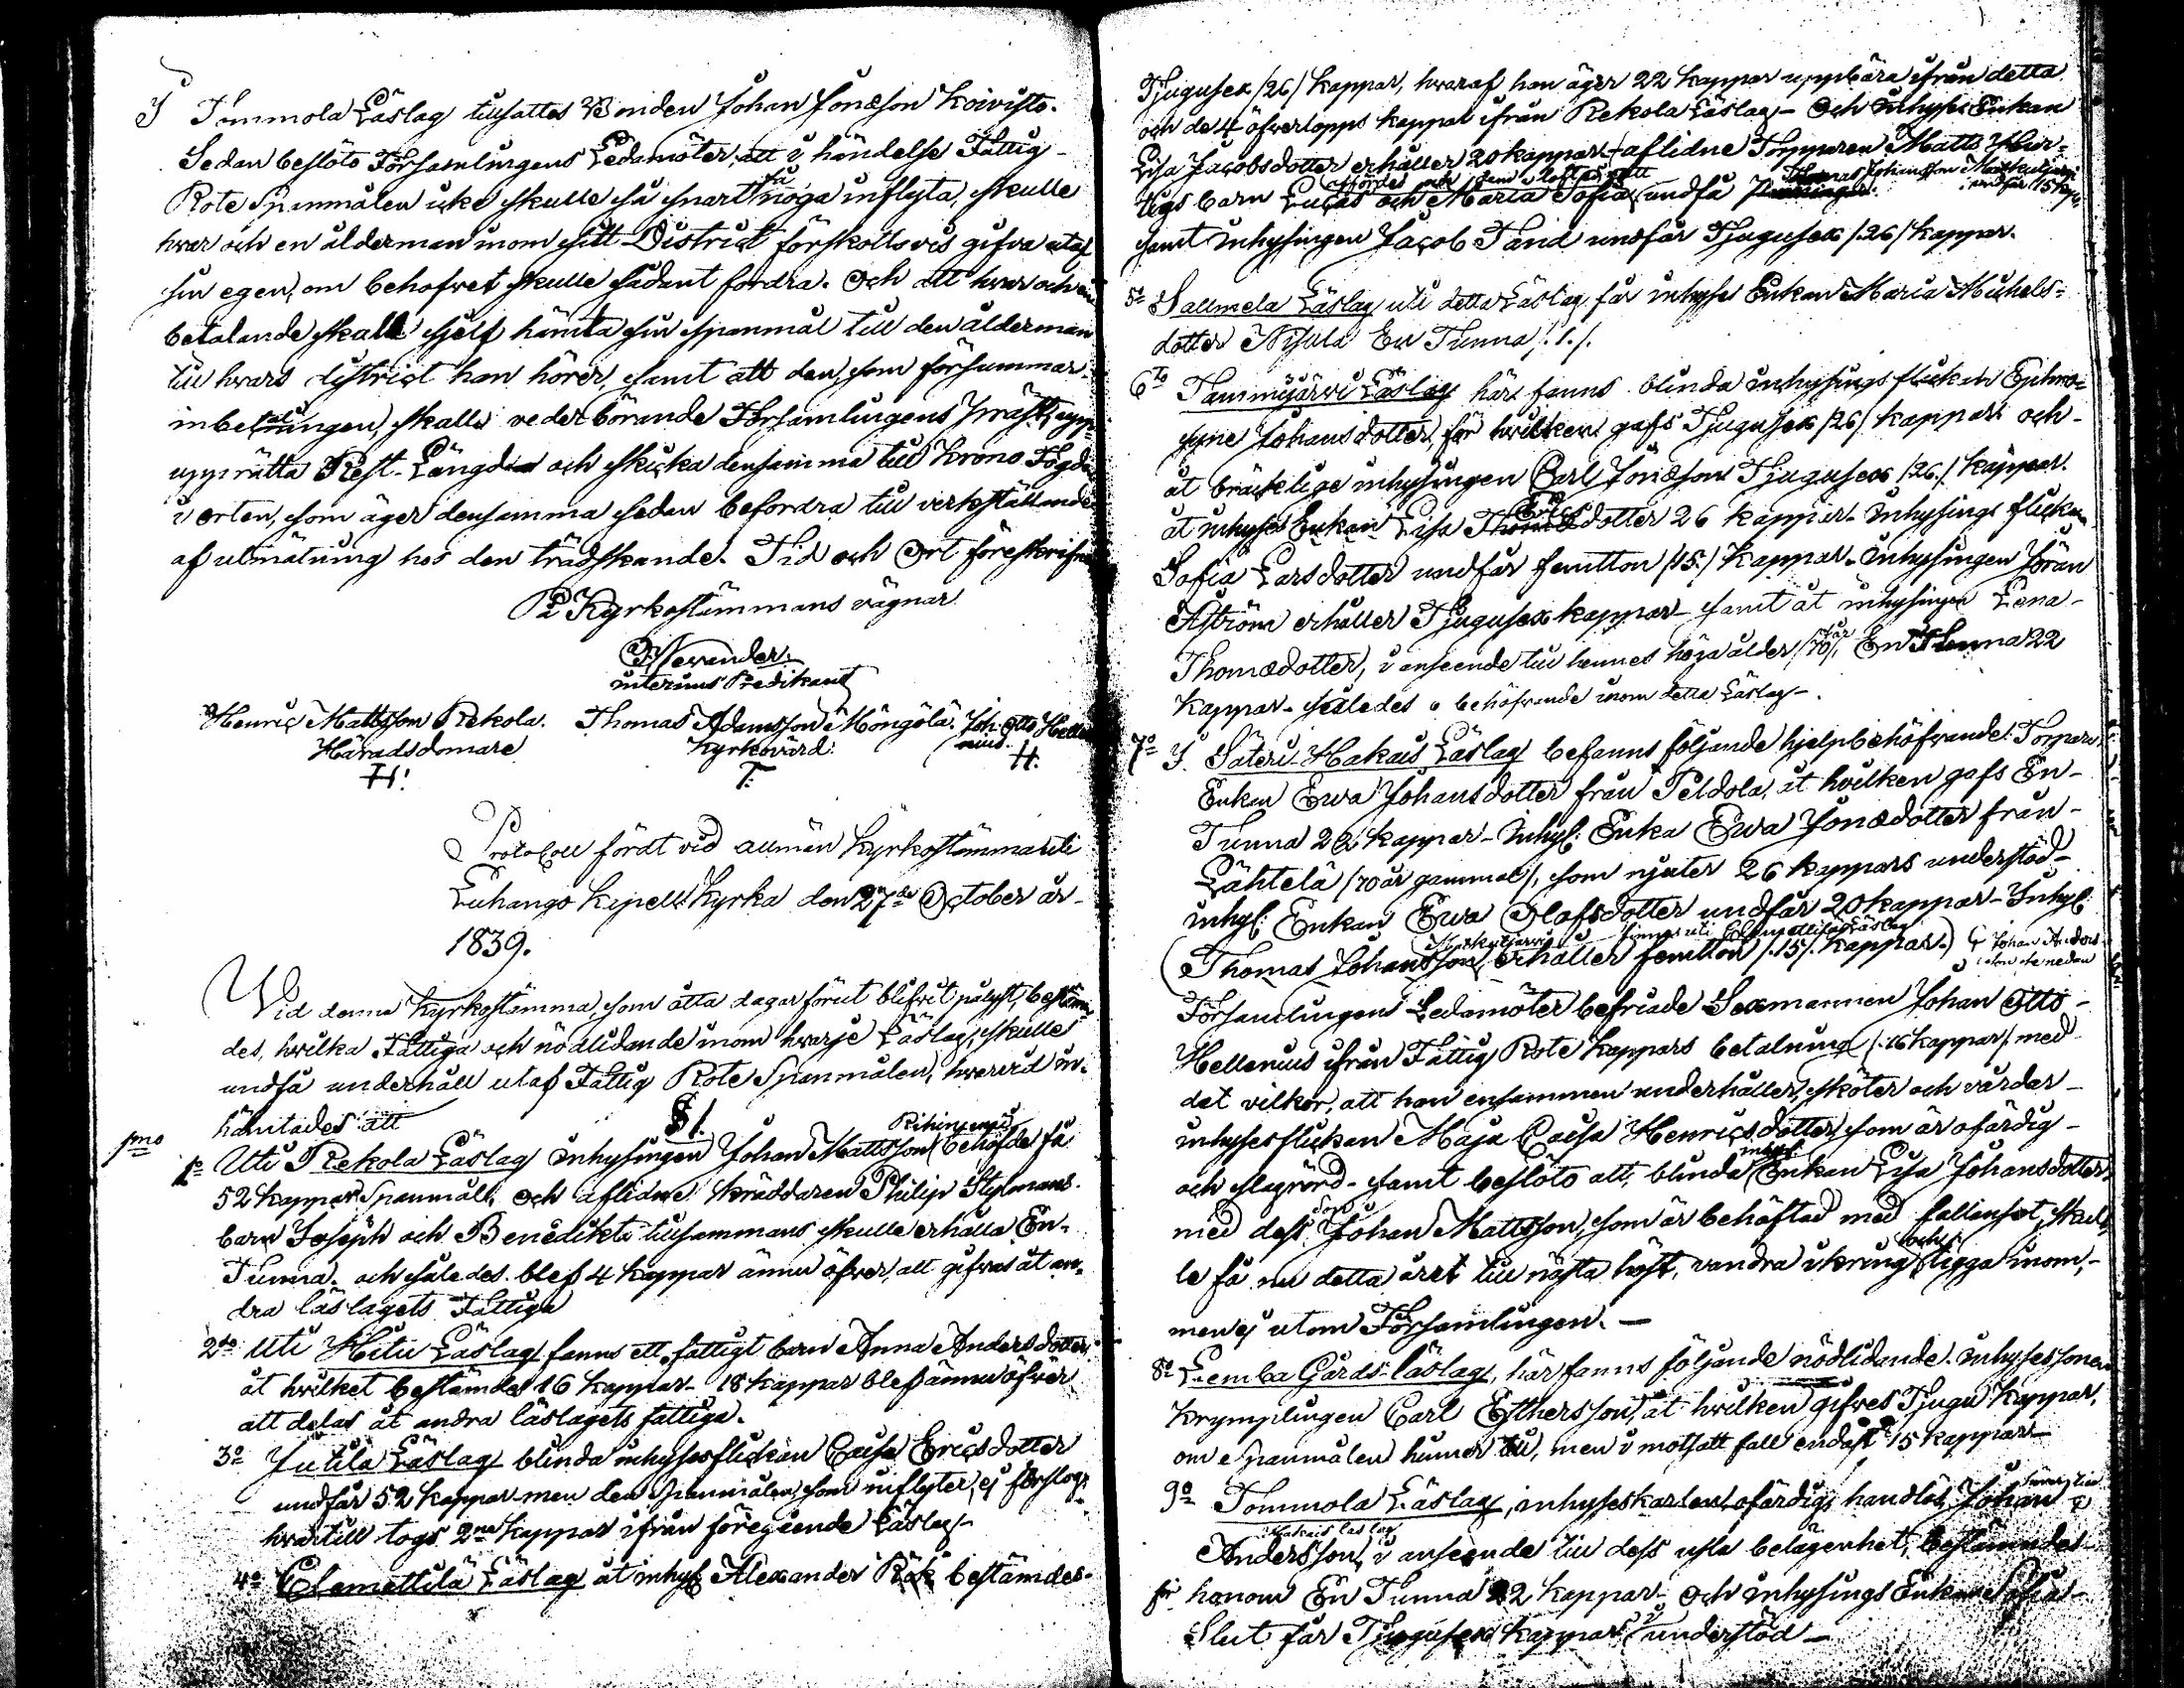 I Tommola Läslag tillsattes Bonden Johan Jonæson Koivisto.
Sedan beslöto Församlingens Ledamöter, att i händelse Fattig-
Rote Spannmålen icke skulle så snart så noga inflyta, skulle
hvar och en ålderman inom sitt District förskottsvis gifva utaf
sin egen, om behofvet skulle sådant fordra. Och att hvar och en
betalande skall sjelf hämta sin spanmål till den ålderman
till hvars district han hörer, samt att den, som försummar
inbetalningen, skall vederbörande Församlingens Präst, upp-
upprätta Rest-Längd och skicka densamma till Krono Fogden
i orten, som äger densamma sedan befordra till verkställande
af utmätning hos den trädskande. Tid och Ort föreskrifne
På Kyrkostämmans vägnar
Nevander.
interims Predikant
Henric Mattsson Rekola. Thomas Adamsson Möngölä. Joh. Otto Helle-
Häradsdomare Kyrkovärd. nius.
H! T. H.
Protocoll fördt vid allmän Kyrkostämma uti
Luhango Kapells Kyrka den 27de October år
1839.
Vid denna Kyrkostämma, som åtta dagar förut blifvit pålyst, bestäm-
des, hvilka Fattiga och nödlidande inom hvarje Läslag, skulle
undfå underhåll utaf Fattig Rote Spanmålen, hvarvid in-
hämtades att
§ 1.
1mo
1o Uti Rekola Läslag Inhysingen Johan Mattsson behöfde få
52 kappar Spanmål, och aflidne skräddaren Philip Stylmans
barn Joseph och Benedikta tillsammans skulle erhålla En
Tunna. och således blef 4 kappar ännu öfver, att gifvas åt an-
dra läslagets Fattiga
2do Uti Hitu Läslag fanns ett fattigt barn Anna Andersdotter,
åt hvilket bestämdes 16 kappar - 18 kappar blef ännu öfver
att delas åt andra läslagets fattiga.
3o Jutila Läslag blinda inhysesflickan Caisa Ericsdotter
undfår 52 kappar men den spanmålen, som inflyter, ej förslog
hvartill togs 2ne kappar ifrån föregående Läslag -
4o Clemettilä Läslag åt inhys. Alexander bestämdes
Tjugusex /26/ kappar, hvaraf han äger 22 kappar uppbära ifrån detta
och de 4 öfverlopps kappar ifrån Rekola Läslag - Och Inhyses Enkan
Lisa Jacobsdotter erhåller 20 kappar - aflidne Torpparen Matts
barn Lucas och Maria Sofia undfå
Thomas Johansson undfår 15 kapp.
samt inhysingen Jacob Tand undfår Tjugusex /26/ kappar.
5o Sallmela Läslag, uti detta Läslag får inhyses Enkan Maria Michels-
dotter Nisula En Tunna /.1./.
6to Tammijärvi Läslag här fanns blinda inhysings flickan Ephro-
syne Johansdotter, för hvilken gafs Tjugusex /26/ kappar och
åt bräcklige inhysingen Carl Jonæson Tjugusex /26./ kappar.
åt inhyses Enkan Lisa Ericsdotter 26 kappar. Inhysings flickan
Sofia Larsdotter undfår femtton /15./ kappar. Inhysingen Göran
Åström erhåller Tjugusex kappar - samt åt inhysingen Lena
Thomædotter, i anseende till hennes höga ålder /70 år/, En Tunna 22
kappar - således 6 behöfvande inom detta Läslag -.
7o I Säteri-Hakais Läslag befanns följande hjelpbehöfvande: Torpare
Enkan Ewa Johansdotter från Peldola, åt hvilken gafs En
Tunna 22 kappar - Inhys: Enka Ewa Jonædotter från
Lähtelä /70 år gammal/, som njuter 26 kappars understöd -
inhys: Enkan Ewa Olofsdotter undfår 20 kappar - Inhys:
(Thomas Johansson erhåller femtton /.15/. kappar.) Johan Anders-
finnes uti Clemettilä Läslag
Församlingens Ledamöter befriade Sexmannen Johan Otto
Hellenius ifrån Fattig Rote kappars betalning /:16 kappar/: med
det vilkor, att han ensammen underhåller, sköter och vårdar
inhysesflickan Maja Caisa Henricsdotter, som är ofärdig
och slagrörd - samt beslöto att, blinda inhys. Enkan Lisa Johansdotter
med dess son Johan Mattsson, som är behäftad med fallinsot, skul-
le få nu detta året till nästa höst, vandra ikring och tigga inom,
men ej utom Församlingen. -
8o Lemba Gårds-läslag, här fanns följande nödlidande. Inhyses sonen
Krymplingen Carl Esthersson, åt hvilken gifves Tjugu Kappar,
om Spanmålen hinner till, men i motsatt fall endast 15 kappar -
9o Tommola Läslag, inhyseskarlen, ofärdig, handlös, Johan
Hakais läslag
Andersson, i anseende till dess usla belägenhet, bestämdes
för honom En Tunna 22 kappar - Och inhysings Enkan Sofia
Slut får Tjugusex kappars understöd -